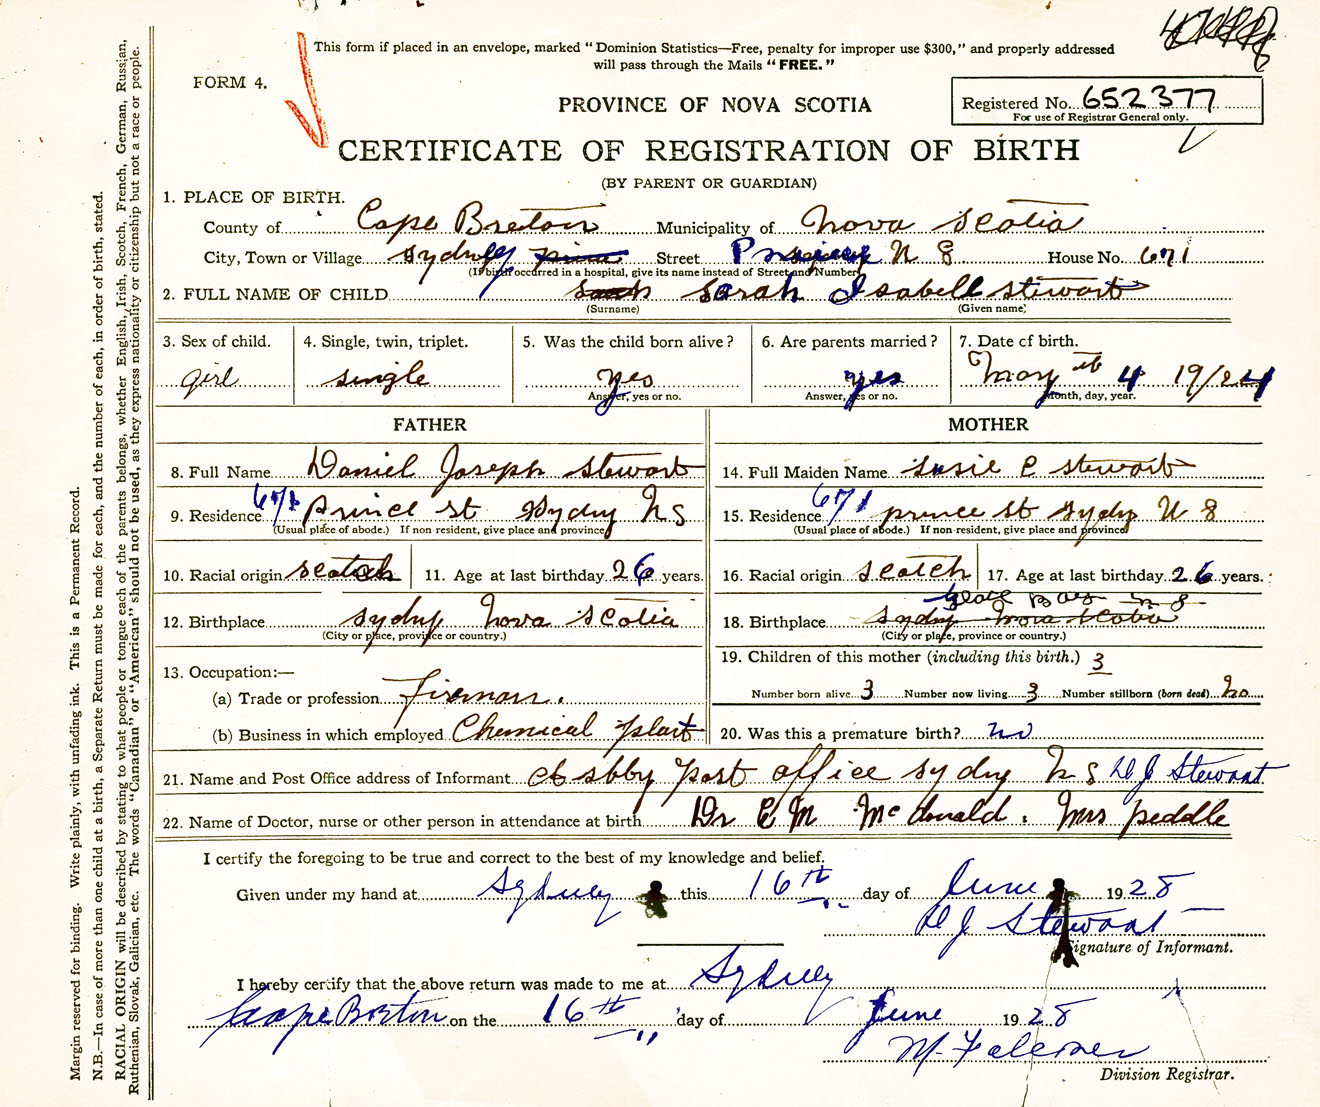 This form if placed in an envelope, marked "Dominion Statistics—Free, penalty for improper use $300," and properly addressed
will pass through the Mails "FREE."
FORM 4.
PROVINCE OF NOVA SCOTIA
Registered No. 652377
For use of Registrar General only.
CERTIFICATE OF REGISTRATION OF BIRTH
(BY PARENT OR GUARDIAN)
1. PLACE OF BIRTH.
County of Cape Breton Municipality of Nova Scotia
City, Town or Village Sydney Street N S House No. 671
(If birth occurred in a hospital, give its name instead of Street and Number)
2. FULL NAME OF CHILD Sarah Isabell Stewart
(Surname) (Given name)
3. Sex of child. 4. Single, twin, triplet. 5. Was the child born alive? 6. Are parents married? 7. Date of birth.
girl single yes yes May th 4 19/24
Answer, yes or no. Answer, yes or no. Month, day, year.
FATHER MOTHER
8. Full Name Daniel Joseph Stewart 14. Full Maiden Name Susie C Stewart
9. Residence 671 Prince st Sydny N S 15. Residence 671 prince st Sydny N S
(Usual place of abode.) If non-resident, give place and province (Usual place of abode.) If non-resident, give place and province
10. Racial origin scotch 11. Age at last birthday 26 years. 16. Racial origin scotch 17. Age at last birthday 26 years.
Glace Bay N S
12. Birthplace Sydny Nova Scotia 18. Birthplace Sydny Nova Scotia
(City or place, province or country.) (City or place, province or country.)
13. Occupation:— 19. Children of this mother (including this birth.) 3
(a) Trade or profession Fireman. Number born alive 3 Number now living 3 Number stillborn (born dead) No
(b) Business in which employed Chemical plant 20. Was this a premature birth? no
21. Name and Post Office address of Informant Ashby post office Sydny N S D J Stewart
22. Name of Doctor, nurse or other person in attendance at birth Dr E M McDonald. Mrs Peddle
I certify the foregoing to be true and correct to the best of my knowledge and belief.
Given under my hand at Sydney this 16th day of June 1928
D J Stewart
Signature of Informant.
I hereby certify that the above return was made to me at Sydney
Cape Breton on the 16th day of June 1928
M. Falconer
Division Registrar.
Margin reserved for binding. Write plainly, with unfading ink. This is a Permanent Record.
N.B.—In case of more than one child at a birth, a Separate Return must be made for each, and the number of each, in order of birth, stated.
RACIAL ORIGIN will be described by stating to what people or tongue each of the parents belongs, whether English, Irish, Scotch, French, German, Russian,
Ruthenian, Slovak, Galician, etc. The words "Canadian" or "American" should not be used, as they express nationality or citizenship but not a race or people.